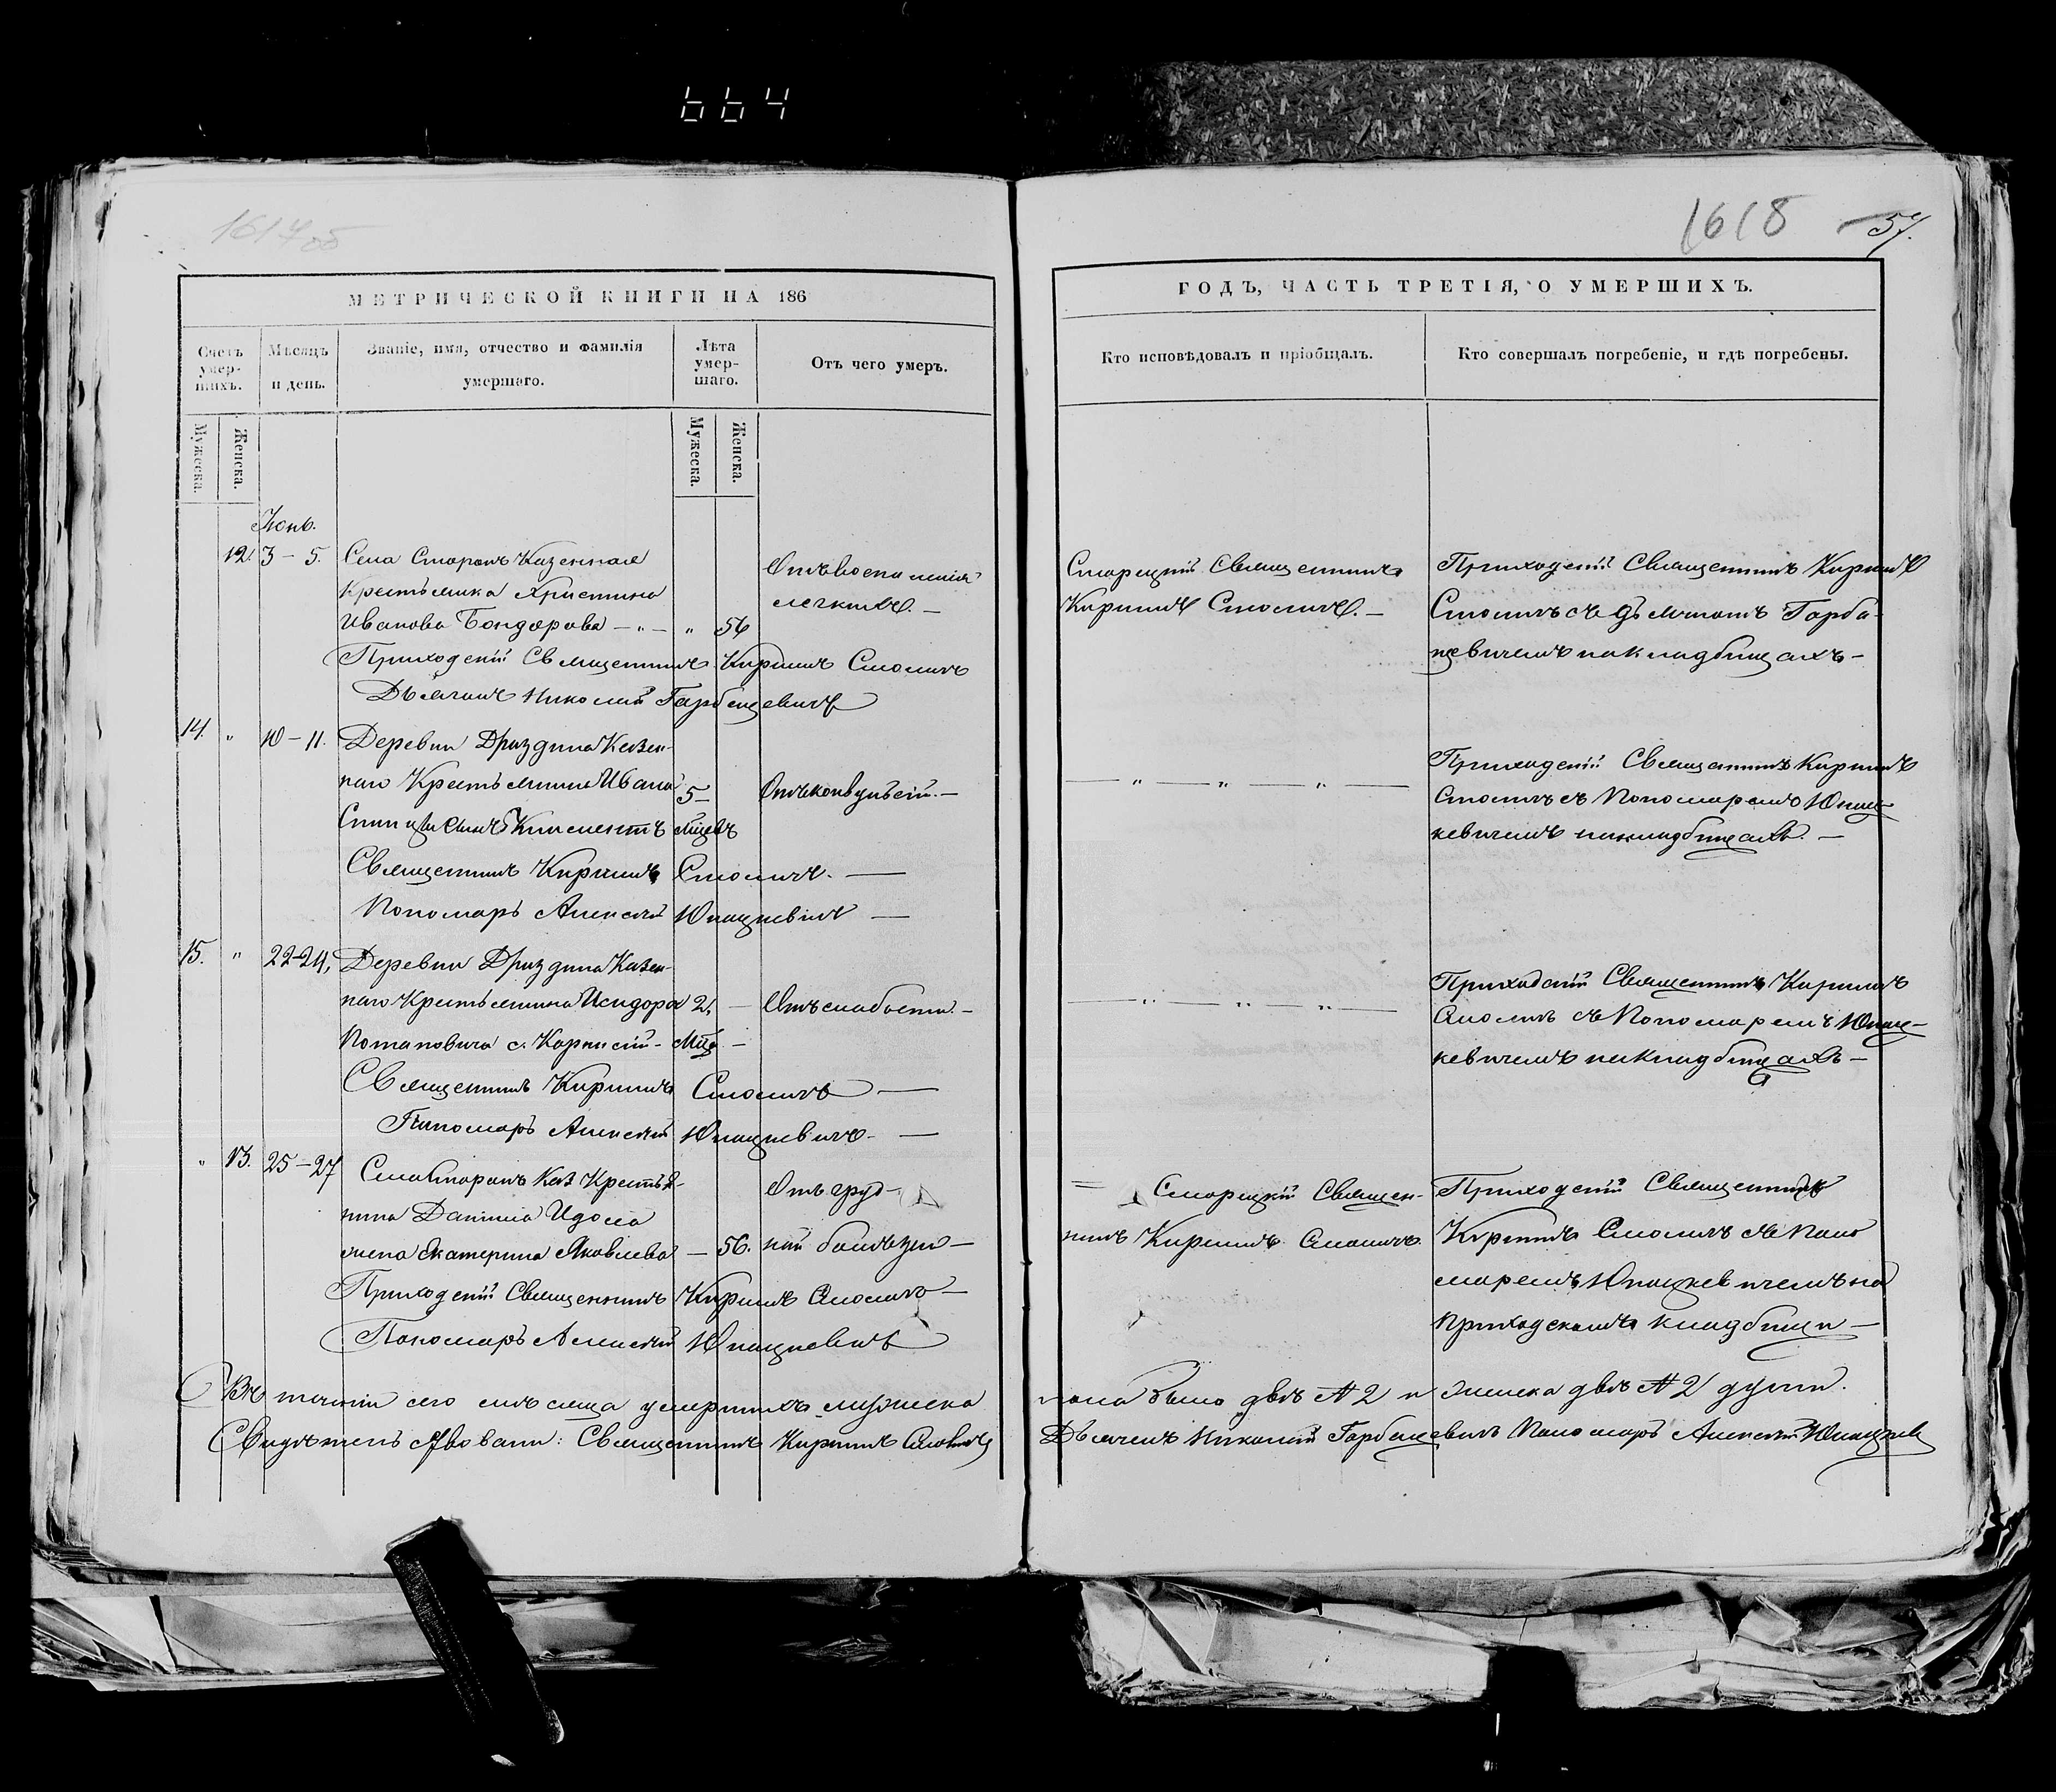 664
1617об
МЕТРИЧЕСКОЙ КНИГИ НА 186
Счетъ умер-шихъ.
Мѣсяцъ и день.
Званіе, имя, отчество и фамилія умершаго.
Лѣта умер-шаго.
Отъ чего умеръ.
Мужеска.
Женска.
Мужеска.
Женска.
Іюнь.
12. 3 – 5. Села Сторонъ Казенная
Крестьянка Христина
Иванова Бондарова – „ – „ 56
Отъ воспаленія
легкихъ. –
Приходскій Священникъ Кириллъ Смоличъ
Дьячокъ Николай Горбацевичъ
14. „ 10 – 11. Деревни Дриздина Казен-
наго Крестьянина Ивана 5 –
сынъ Климентъ мѣсяцъ
Отъ конвульсій. –
Священникъ Кириллъ Смоличъ. –
Пономарь Алексѣй Юшкевичъ –
15. „ 22–24, Деревни Дриздина Казен-
наго Крестьянина Исидора 2, – Отъ слабости. –
Потаповича с. Корнилій – мѣс. –
Священникъ Кириллъ Смоличъ –
Пономарь Алексѣй Юшкевичъ. –
„ 13. 25 – 27 Села Сторонъ Каз Крестья-
нина Даниила Идола
жена Екатерина Яковлева – 56.
Отъ груд-
ной болѣзни –
Приходскій Священникъ Кириллъ Смоличъ –
Пономарь Алексѣй Юшкевичъ
Въ теченіи сего мѣсяца умершихъ мужеска
Свидѣтельствовали: Священникъ Кириллъ Смоличъ
1618
57.
ГОДЪ, ЧАСТЬ ТРЕТІЯ, О УМЕРШИХЪ.
Кто исповѣдовалъ и пріобщалъ.
Кто совершалъ погребеніе, и гдѣ погребены.
Священникъ
Кириллъ Смоличъ. –
Приходскій Священникъ Кириллъ
Смоличъ съ дьячкомъ Горба-
цевичемъ на кладбищахъ –
– „ – „ – „ –
Приходскій Священникъ Кириллъ
Смоличъ съ Пономаремъ Юшке-
кевичемъ на кладбищахъ. –
– „ – „ – „ –
Приходскій Священникъ Кириллъ
Смоличъ съ Пономаремъ
кевичемъ на кладбищахъ –
Священ-
никъ Кириллъ Смоличъ.
Приходскій Священникъ
Кириллъ Смоличъ съ Поно
маремъ Юшкевичемъ на
Приходскомъ кладбищи –
пола было двѣ № 2 и женска двѣ № 2 души.
Дьячекъ Николай Горбацевичъ Пономарь Алексѣй